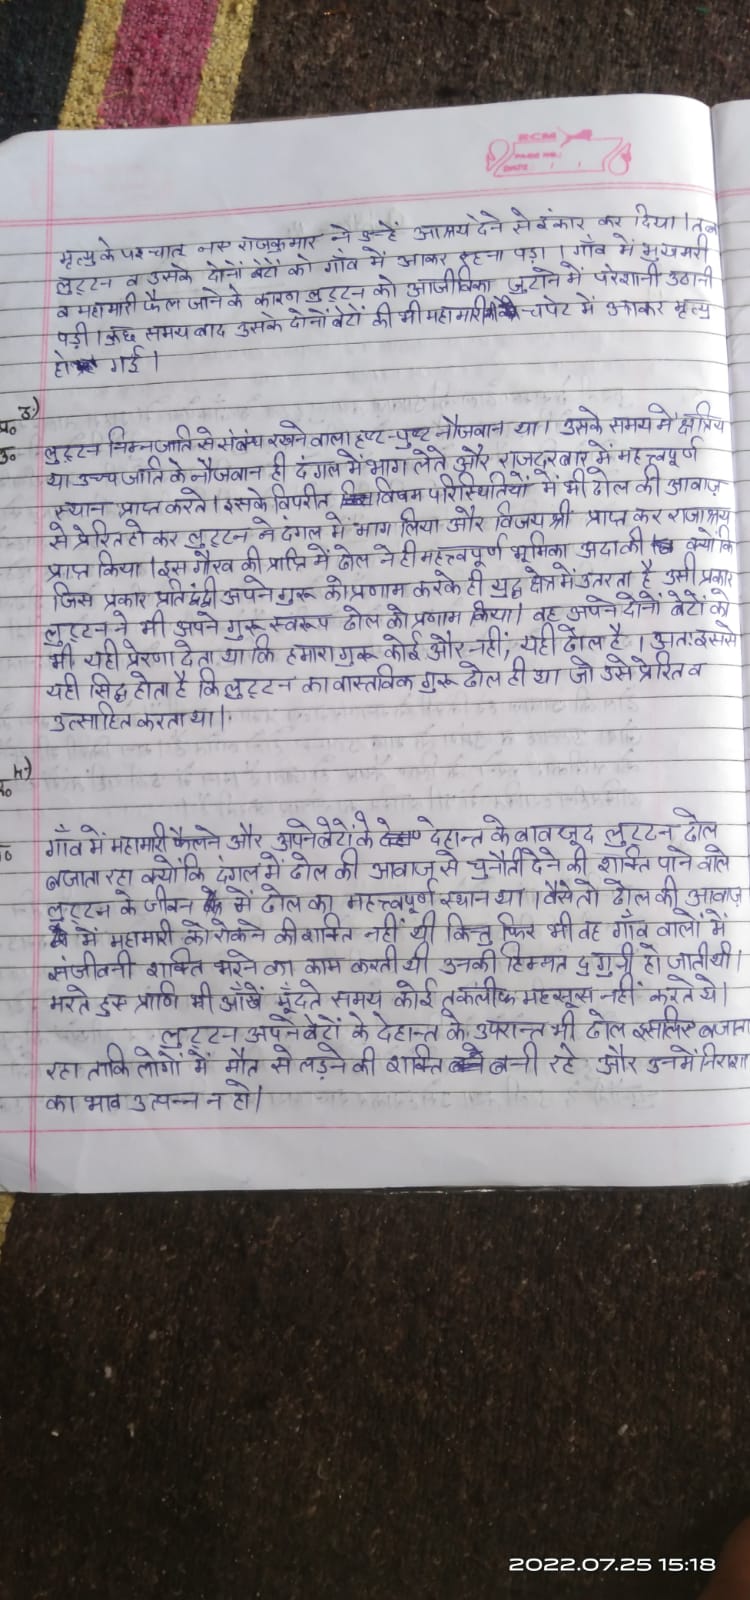 RCM
PAGE NO.:
DATE: / /
मृत्यु के पश्चात् नए राजकुमार ने उन्हें आश्रय देने से इंकार कर दिया। तब
लुट्टन व उसके दोनों बेटों को गाँव में आकर रहना पड़ा। गाँव में भुखमरी
व महामारी फैल जाने के कारण लुट्टन को आजीविका जुटाने में परेशानी उठानी
पड़ी। कुछ समय बाद उसके दोनों बेटों की भी महामारी की चपेट में आकर मृत्यु
हो गई।
प्र० 3.)
उ० लुट्टन निम्न जाति से संबंध रखने वाला हष्ट-पुष्ट नौजवान था। उसके समय में क्षत्रिय
या उच्च जाति के नौजवान ही दंगल में भाग लेते और राजदरबार में महत्त्वपूर्ण
स्थान प्राप्त करते। इसके विपरीत विषम परिस्थितियों में भी ढोल की आवाज़
से प्रेरित हो कर लुट्टन ने दंगल में भाग लिया और विजय श्री प्राप्त कर राजाश्रय
प्राप्त किया। इस गौरव की प्राप्ति में ढोल ने ही महत्त्वपूर्ण भूमिका अदा की क्योंकि
जिस प्रकार प्रतिद्वंद्वी अपने गुरू को प्रणाम करके ही युद्ध क्षेत्र में उतरता है उसी प्रकार
लुट्टन ने भी अपने गुरू स्वरूप ढोल को प्रणाम किया। वह अपने दोनों बेटों को
भी यही प्रेरणा देता था कि हमारा गुरू कोई और नहीं, यही ढोल है। अतः इससे
यही सिद्ध होता है कि लुट्टन का वास्तविक गुरू ढोल ही था जो उसे प्रेरित व
उत्साहित करता था।
प्र० 4.)
उ० गाँव में महामारी फैलने और अपने बेटों के देहान्त के बावजूद लुट्टन ढोल
बजाता रहा क्योंकि दंगल में ढोल की आवाज़ से चुनौती देने की शक्ति पाने वाले
लुट्टन के जीवन में ढोल का महत्त्वपूर्ण स्थान था। वैसे तो ढोल की आवाज़
में महामारी को रोकने की शक्ति नहीं थी किन्तु फिर भी वह गाँव वालों में
संजीवनी शक्ति भरने का काम करती थी उनकी हिम्मत दुगुनी हो जाती थी।
मरते हुए प्राणि भी आँखें मूँदते समय कोई तकलीफ महसूस नहीं करते थे।
लुट्टन अपने बेटों के देहान्त के उपरान्त भी ढोल इसलिए बजाता
रहा ताकि लोगों में मौत से लड़ने की शक्ति बनी रहे और उनमें निराशा
का भाव उत्पन्न न हो।
2022.07.25 15:18